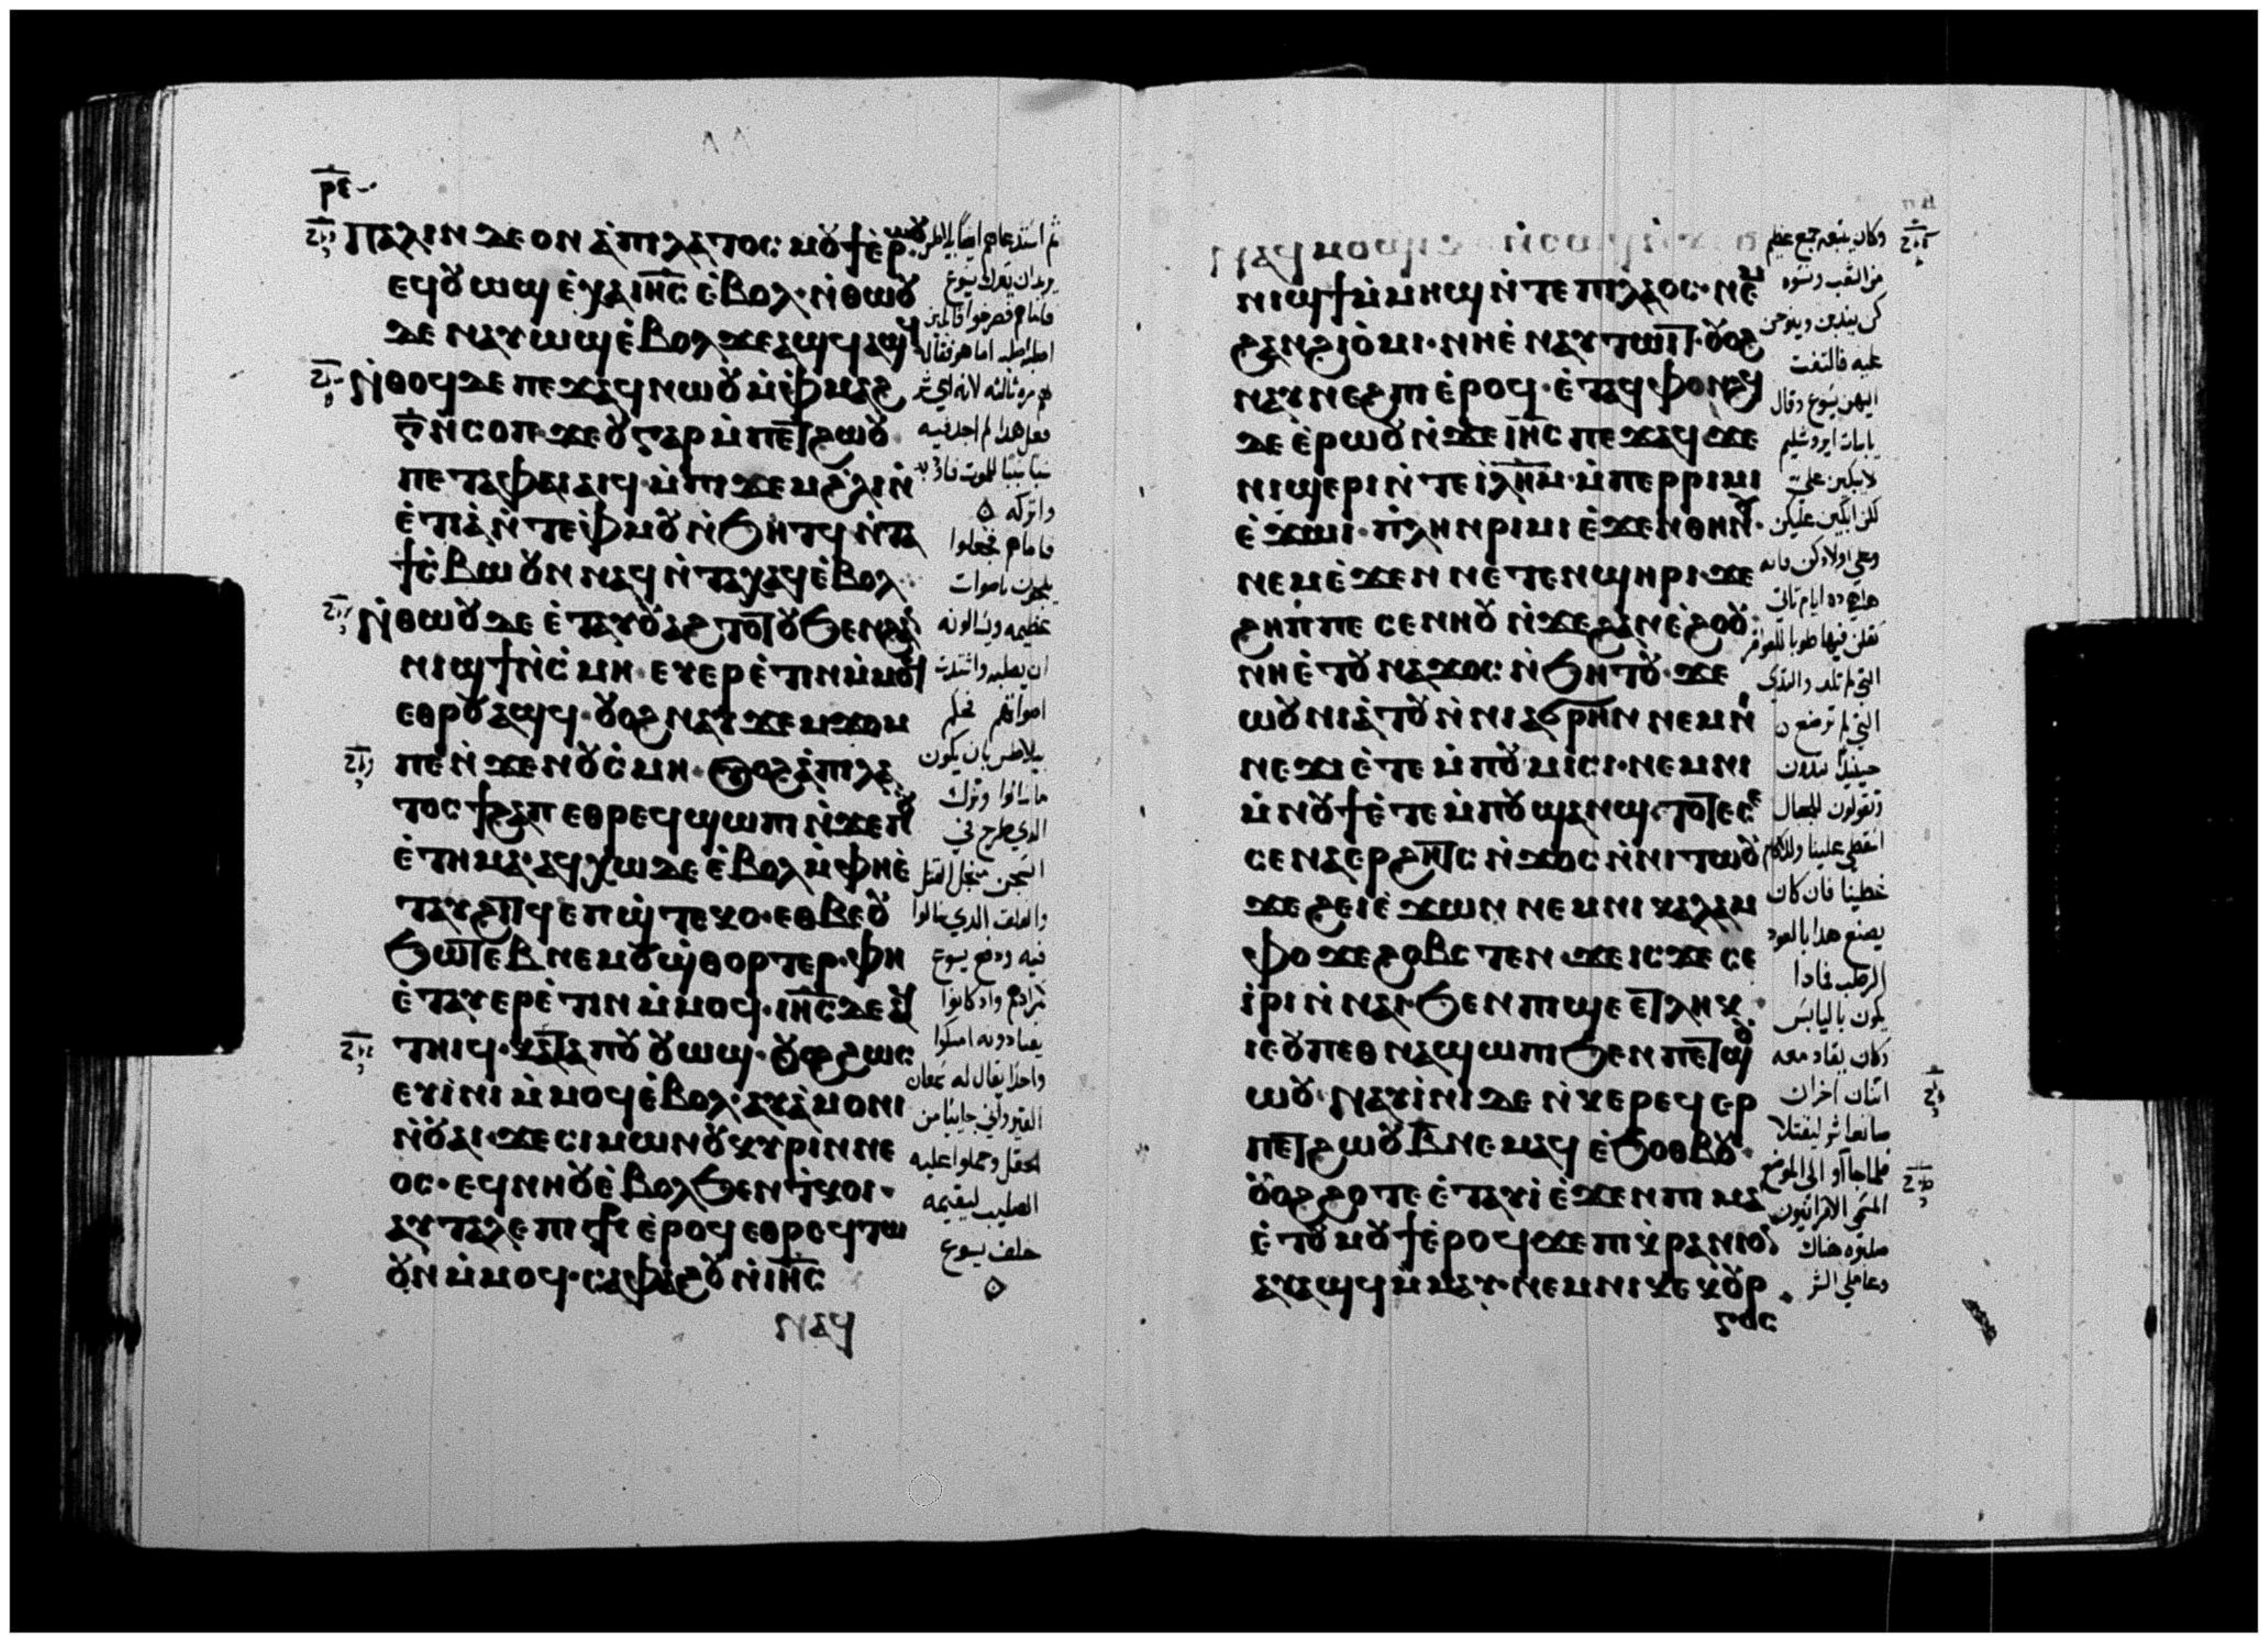 ⲣⲉ
ⲡⲁⲗⲓⲛ ⲇⲉ ⲟⲛ ⲁ̇ⲡⲓⲗⲁⲧⲟⲥ ⲙⲟⲩϯ ⲉ̇ⲣⲱⲟⲩ
ⲉϥⲟⲩⲱϣ ⲉ̇ⲭⲁ ⲓⲏ̅ⲥ̅ ⲉ̇ⲃⲟⲗ· ⲛ̇ⲑⲱⲟⲩ
ⲇⲉ ⲛⲁⲩⲱϣ ⲉ̇ⲃⲟⲗ ϫⲉ ⲁϣϥ ⲁϣϥ
ⲛ̇ⲑⲟϥ ⲇⲉ ⲡⲉϫⲁϥ ⲛⲱⲟⲩ ⲙ̇ⲫⲙⲁϩ
ⲅ̅ ⲛ̇ⲥⲟⲡ· ϫⲉ ⲟⲩ ⲅⲁⲣ ⲙ̇ⲡⲉⲧϩⲱⲟⲩ
ⲡⲉⲧⲁ ⲫⲁⲓ ⲁⲓϥ· ⲙ̇ⲡⲓϫⲉⲙ ϩ̇ⲗⲓ ⲛ̇
ⲉ̇ⲧⲓⲁ̇ ⲛ̇ⲧⲉ ⲫ̇ⲙⲟⲩ ⲛ̇ϧⲏⲧϥ ⲛ̇ⲧⲁ
ϯⲥ̇ⲃⲱ ⲟⲩⲛ ⲛⲁϥ ⲛ̇ⲧⲁⲭⲁϥ ⲉ̇ⲃⲟⲗ
ⲛ̇ⲑⲱⲟⲩ ⲇⲉ ⲉ̇ⲧⲁⲩⲟⲩⲁϩⲧⲟⲧⲟⲩ ϧⲉⲛ ϩⲁⲛ
ⲛⲓϣϯ ⲛ̇ⲥ̇ⲙⲏ· ⲉⲩⲉⲣⲉ̇ⲧⲓⲛ ⲙ̇ⲙⲟϥ
ⲉⲑⲣⲟⲩⲁϣϥ· ⲟⲩⲟϩ ⲛⲁⲩϫⲉⲙϫⲟⲙ
ⲡⲉ ⲛ̇ϫⲉ ⲛⲟⲩⲥ̇ⲙⲏ· ⲟⲩⲟϩ ⲁ̇ⲡⲓⲗⲁ
ⲧⲟⲥ ϯϩⲁⲡ ⲉⲑⲣⲉϥϣⲱⲡⲓ ⲛ̇ϫⲉ ⲡⲟⲩ
ⲉ̇ⲧⲏⲙⲁ· ⲁϥⲭⲱ ⲇⲉ ⲉ̇ⲃⲟⲗ ⲙ̇ⲫⲏⲉ̇
ⲧⲁⲩϩⲓⲧϥ ⲉⲡϣ̇ⲧⲉⲕⲟ· ⲉⲑⲃⲉ ⲟⲩ
ϧⲱⲧⲉⲃ ⲛⲉⲙ ⲟⲩϣ̇ⲑⲟⲣⲧⲉⲣ· ⲫⲏ
ⲉ̇ⲧⲁⲩⲉⲣⲉ̇ⲧⲓⲛ ⲙ̇ⲙⲟϥ· ⲓⲏ̅ⲥ̅ ⲇⲉ ⲁϥ
ⲧⲏⲓϥ· ⲕⲁⲧⲁ ⲡⲟⲩⲟⲩⲱϣ· ⲟⲩⲟϩ ϩⲱⲥ
ⲉⲩⲓ̇ⲛⲓ ⲙ̇ⲙⲟϥ ⲉ̇ⲃⲟⲗ· ⲁⲩⲁ̇ⲙⲟⲛⲓ
ⲛ̇ⲟⲩⲁⲓ· ϫⲉ ⲥⲓⲙⲱⲛ ⲟⲩⲕⲩⲣⲓⲛⲛⲉ
ⲟⲥ· ⲉϥⲛⲏⲟⲩ ⲉ̇ⲃⲟⲗ ϧⲉⲛ ⲧ̇ⲕⲟⲓ·
ⲁⲩⲧⲁⲗⲉ ⲡⲓⲥ̅ⲧ̅ⲥ̅ ⲉ̇ⲣⲟϥ ⲉⲑⲣⲉϥⲧⲱ
ⲟⲩⲛ ⲙ̇ⲙⲟϥ· ⲥⲁⲫⲁϩⲟⲩ ⲛ̇ⲓⲏ̅ⲥ̅
ⲛⲁϥ
ثم استدعاهم ايضا بيلاطس
يريد ان يترك يسوع
فاماهم فصرخوا قايلين
اصلبه اصلبه اما هو فقال
لهم مره ثالثه لانه اي شر
فعل هدا لم اجد فيه
سببا للموت
واتركه
فاماهم فجعلوا
يلحون باصوات
عظيمه ويسالونه
ان يصلبه واشتدت
اصواتهم فحكم
بيلاطس بان يكون
ما سالوا وترك
الدي طرح في
السجن من اجل القتل
والفلقه الدي سالوا
فيه ودفع يسوع
لمرادهم واد كانوا
يقتادونه امسكوا
واحدا يقال له سمعان
القيرواني جاييا من
الحقل وحملوا عليه
الصليب ليقيمه
خلف يسوع
ⲛⲁϥⲙⲟϣⲓ
ⲛⲓϣϯ ⲙ̇ⲙⲏϣ ⲛ̇ⲧⲉ ⲡⲓⲗⲁⲟⲥ· ⲛⲉⲙ
ϩⲁⲛϩⲓⲟ̇ⲙⲓ· ⲛⲏⲉ̇ ⲛⲁⲩⲧⲱⲓⲧ· ⲟⲩⲟϩ
ⲛⲁⲩⲛⲉϩⲡⲓ ⲉ̇ⲣⲟϥ· ⲉ̇ⲧⲁϥⲫⲟⲛϩϥ
ⲇⲉ ⲉ̇ⲣⲱⲟⲩ ⲛ̇ϫⲉ ⲓⲏ̅ⲥ̅ ⲡⲉϫⲁϥ ϫⲉ
ⲛⲓϣⲉⲣⲓ ⲛ̇ⲧⲉ ⲓ̅ⲗ̅ⲏ̅ⲙ̅· ⲙ̇ⲡⲉⲣⲣⲓⲙⲓ
ⲉ̇ϫⲱⲓ· ⲡ̇ⲗⲏⲛ ⲣⲓⲙⲓ ⲉ̇ϫⲉⲛ ⲑⲏⲛⲟⲩ·
ⲛⲉⲙ ⲉ̇ϫⲉⲛ ⲛⲉⲧⲉⲛϣⲏⲣⲓ· ϫⲉ
ϩⲏⲡⲡⲉ ⲥⲉⲛⲏⲟⲩ ⲛ̇ϫⲉ ϩⲁⲛⲉ̇ϩⲟⲟⲩ·
ⲛⲏⲉ̇ⲧⲟⲩⲛⲁϫⲟⲥ ⲛ̇ϧⲏⲧⲟⲩ· ϫⲉ
ⲱⲟⲩⲛⲓⲁ̇ⲧⲟⲩ ⲛ̇ⲛⲓⲁϭⲣⲏⲛ ⲛⲉⲙ ⲛⲓ
ⲛⲉϫⲓ ⲉ̇ⲧⲉ ⲙ̇ⲡⲟⲩⲙⲓⲥⲓ· ⲛⲉⲙ ⲛⲓ
ⲙ̇ⲛⲟϯ ⲉ̇ⲧⲉ ⲙ̇ⲡⲟⲩϣⲁⲛϣ· ⲧⲟⲧⲉ
ⲥⲉⲛⲁⲉⲣϩⲏⲧⲥ ⲛ̇ϫⲟⲥ ⲛ̇ⲛⲓⲧⲱⲟⲩ
ϫⲉ ϩⲉⲓ ⲉ̇ϫⲱⲛ ⲛⲉⲙ ⲛⲓⲕⲁⲗⲁⲙ
ⲫⲟ ϫⲉ ϩⲟⲃⲥⲧⲉⲛ· ϫⲉ ⲓⲥϫⲉ ⲥⲉ
ⲓ̇ⲣⲓ ⲛ̇ⲛⲁⲓ· ϧⲉⲛ ⲡⲓϣⲉ ⲉⲧⲗⲏⲕ
ⲓⲉ ⲟⲩ ⲡⲉⲑⲛⲁϣⲱⲡⲓ ϧⲉⲛ ⲡⲉⲧϣⲟⲩ
ⲱⲟⲩ· ⲛⲁⲩⲓ̇ⲛⲓ ⲇⲉ ⲛ̇ⲕⲉⲣⲉϥⲉⲣ
ⲡⲉⲧϩⲱⲟⲩ ⲃ̅ ⲛⲉⲙⲁϥ ⲉ̇ϧⲟⲑⲃⲟⲩ·
ⲟⲩⲟϩ ϩⲟⲧⲉ ⲉ̇ⲧⲁⲩⲓ̇ ⲉ̇ϫⲉⲛ ⲡⲓⲙⲁ
ⲉ̇ⲧⲟⲩⲙⲟⲩϯ ⲉ̇ⲣⲟϥ ϫⲉ ⲡⲓⲕ̇ⲣⲁⲛⲓⲟⲛ
ⲁⲩⲁϣϥ ⲙ̇ⲙⲁⲩ· ⲛⲉⲙ ⲛⲓⲕⲉⲕⲟⲩⲣ
ⲅⲟⲥ
وكان يتبعه جمع عظيم
من الشعب ونسوه
كن يندبن وينوحن
عليه فالتفت
اليهن يسوع وقال
يا بنات ايروشليم
لا تبكين علي
لكن ابكين عليكن
وعلي اولادكن فانه
هوده ايام تاتي
تقلن فيها طوبا للعواقر
التي لم تلد والثدي
التي لم ترضع
حينيدا تبدون
وتقولون للجبال
اسقطي علينا وللاكام
غطينا فان كان
يصنع هدا بالعود
الرطب فمادا
يكون باليابس
وكان يقاد معه
اتنان اخران
صانعا شر ليقتلا
فلما جاآو الى الموضع
المسمي الاقرانيون
صلبوه هناك
وعاملي الشر